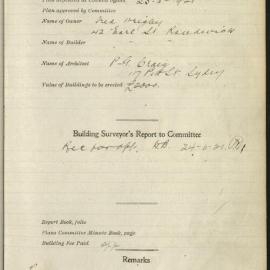 Plan approved by Committee
Name of Owner Fred Wrigley
42 Earl St Randwick
Name of Builder
Name of Architect P. G. Craig
17 Pitt St Sydney
Value of Buildings to be erected £2000.
Building Surveyor's Report to Committee
Rec for app.
Report Book, folio
Plans Committee Minute Book, page
Building Fee Paid
Remarks